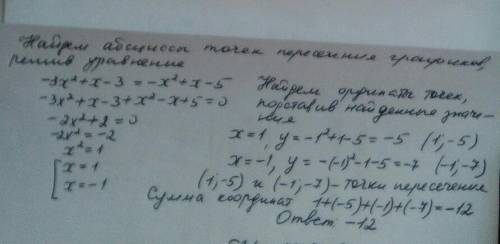 Найдем абсциссы точек пересечения графиков,
решив уравнение
-3x²+x-3=-x²+x-5
-3x²+x-3+x²-x+5=0
-2x²+2=0
-2x²=-2
x²=1
[x=1
x=-1
Найдем ординаты точек,
подставив найденные значе-
ния
x=1, y=-1²+1-5=-5 (1;-5)
x=-1, y=-(-1)²-1-5=-7 (-1;-7)
(1;-5) и (-1;-7)-точки пересечение
Сумма координат 1+(-5)+(-1)+(-7)=-12
Ответ: -12